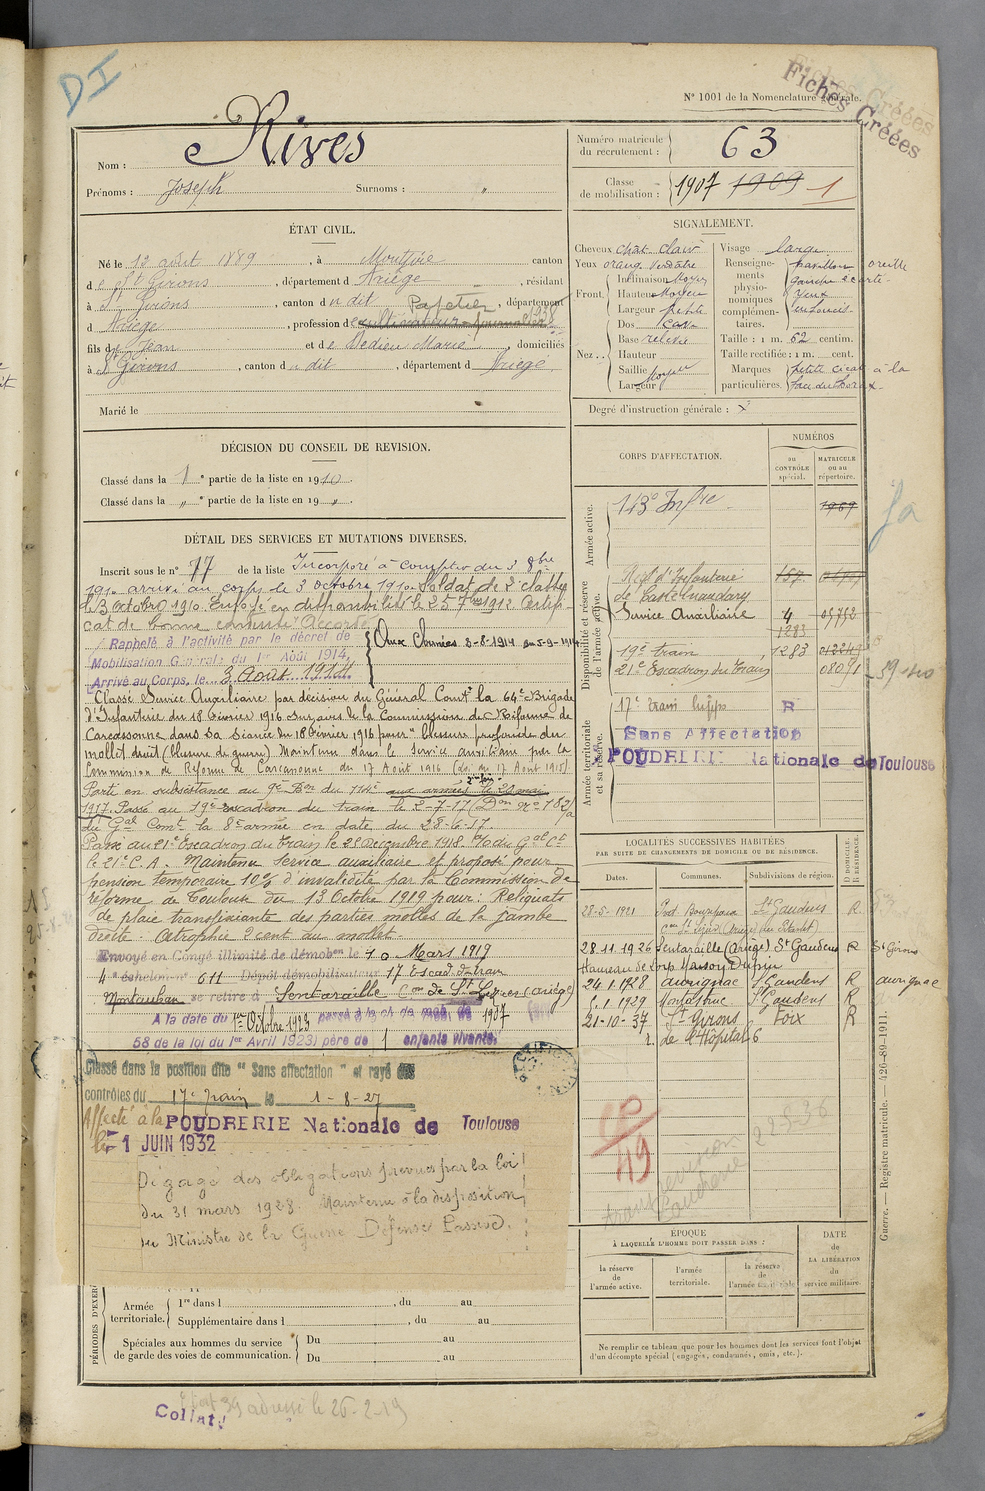 DI
Fiches Créées
N° 1001 de la Nomenclature générale.
Nom : Rives
Prénoms : Joseph Surnoms : "
Numéro matricule du recrutement : 63
Classe de mobilisation : 1907 1909 1
ÉTAT CIVIL.
Né le 13 août 1889, à Montjoie canton
de St Girons, département d Ariège, résidant
à St Girons, canton du dit Papetier, département
d Ariège, profession de cultivateur journalier
fils de Jean et de Dedieu Marie, domiciliés
à St Girons, canton du dit, département d Ariège.
Marié le
SIGNALEMENT.
Cheveux chât. clair
Yeux orangé verdâtre
Front. Inclinaison Moyen
Hauteur Moyen
Largeur petite
Nez... Dos cave
Base relevée
Hauteur
Saillie Moyen
Largeur
Visage large
Renseignements physionomiques complémentaires. pavillon oreille gauche écarté- yeux enfoncés
Taille : 1 m. 62 centim.
Taille rectifiée : 1 m. cent.
Marques particulières. petite cicat. à la face du thorax.
Degré d'instruction générale : X
DÉCISION DU CONSEIL DE REVISION.
Classé dans la 1e partie de la liste en 1910.
Classé dans la " e partie de la liste en 19 ".
DÉTAIL DES SERVICES ET MUTATIONS DIVERSES.
Inscrit sous le n° 77 de la liste Incorporé à compter du 3 8bre
1910 arrivé au corps le 3 octobre 1910. Soldat de 2e classe
le 3 octobre 1910. Envoyé en disponibilité le 25 7bre 1912. Certifi-
cat de bonne conduite "Accordé"
Rappelé à l'activité par le décret de
Mobilisation Générale du 1er Août 1914,
Arrivé au Corps, le 3 Août 1914.
Aux Armées 3-8-1914 au 5-9-1914
Classé Service Auxiliaire par décision du Général Comt la 64e Brigade
d'Infanterie du 18 Février 1916 sur avis de la Commission de Réforme de
Carcassonne dans sa séance du 18 Février 1916 pour "blessure profonde du
mollet droit (blessure de guerre) Maintenu dans le service auxiliaire par la
Commission de Réforme de Carcassonne du 17 Août 1916
Passé en subsistance au 9e Bon du 114e aux armées le 28 mai
1917. Passé au 19e escadron du train le 2-7-17 (Don n° 782/a
du Gal Comt la 8e armée en date du 28-6-17.
Passé au 21e Escadron du Train le 25 Décembre 1918 du Gal Ct
le 21e C.A. Maintenu service auxiliaire et proposé pour
pension temporaire 10% d'invalidité par la Commission de
réforme de Toulouse du 13 Octobre 1919 pour: Reliquats
de plaie transfixiante des parties molles de la jambe
droite - Atrophie 2 cent au mollet.
Envoyé en Congé illimité de démobon le 10 Mars 1919
4e échelon n° 611 Dépôt démobilisateur 17 Escad. du train
Montauban se retire à Sentaraille Con de St Lizier (Ariège)
A la date du 1er Octobre 1923 passé à la cl. de mob. de 1907
58 de la loi du 1er Avril 1923) père de 1 enfants vivants.
Classé dans la position dite "Sans affectation" et rayé des
contrôles du 17e train le 1-8-27
Affecté à la POUDRERIE Nationale de Toulouse
le 1 JUIN 1932
Dégagé des obligations prévues par la loi
du 31 mars 1928. Maintenu à la disposition
du Ministre de la Guerre Défense Passive.
CORPS D'AFFECTATION.
NUMÉROS
au CONTRÔLE spécial.
MATRICULE ou au répertoire.
Armée active.
143e Infie 1969
Disponibilité et réserve de l'armée active.
Régt d'Infanterie 157
de Castelnaudary
Service Auxiliaire 4 05752
1283
19e train 1283 012249
21e Escadron du Train 08091
Armée territoriale et sa réserve.
17e train hippo R
Sans Affectation
POUDRERIE Nationale de Toulouse
LOCALITÉS SUCCESSIVES HABITÉES
PAR SUITE DE CHANGEMENTS DE DOMICILE OU DE RÉSIDENCE.
Dates. Communes. Subdivisions de région. D DOMICILE. R RÉSIDENCE.
28-5-1921 St Gaudens R.
28.11.1926 Sentaraille (Ariège) St Gaudens R St Girons
24.1.1928 Aurignac St Gaudens R aurignac
1.1929 Montastruc St Gaudens R
21-10-37 St Girons Foix R
r. de l'Hôpital 6
49
ÉPOQUE
À LAQUELLE L'HOMME DOIT PASSER DANS :
la réserve de l'armée active.
l'armée territoriale.
la réserve de l'armée territoriale
DATE DE LA LIBÉRATION du service militaire.
Ne remplir ce tableau que pour les hommes dont les services font l'objet
d'un décompte spécial (engagés, condamnés, omis, etc.).
PÉRIODES D'EXER
Armée territoriale. 1re dans l , du au
Supplémentaire dans l , du au
Spéciales aux hommes du service de garde des voies de communication. Du au
Du au
Guerre. — Registre matricule. — 426-89-1911.
adressé le 26-2-19
Collaté